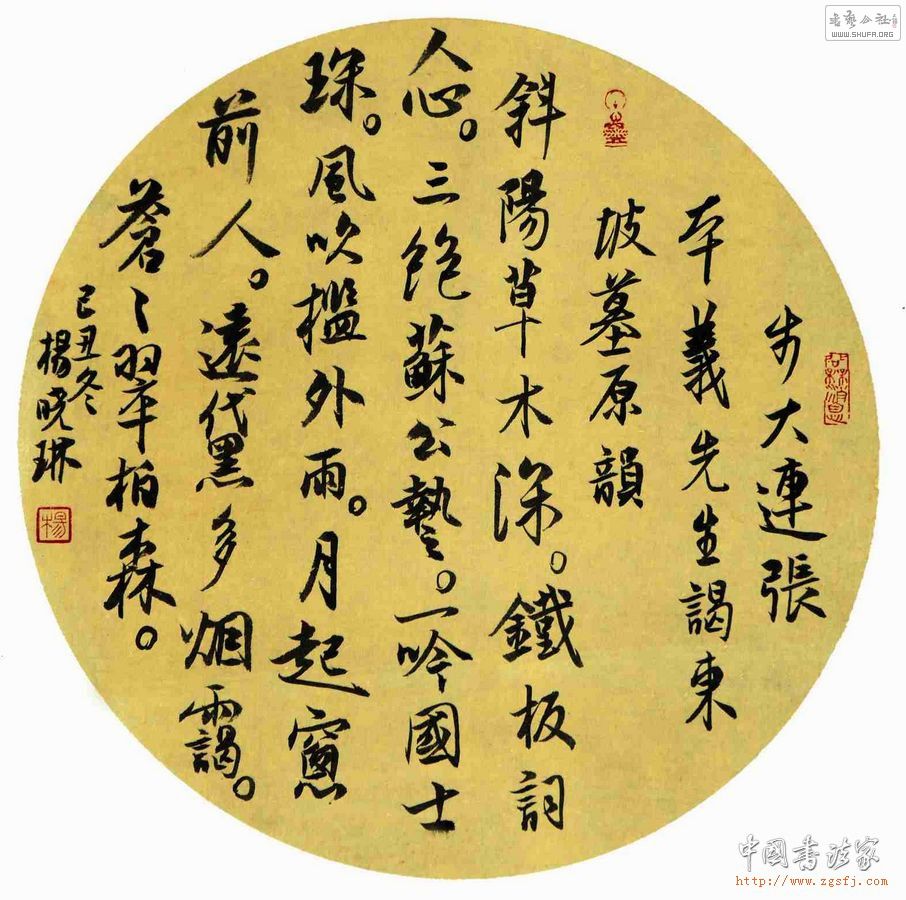 步大連張
本義先生謁東
坡墓原韻
斜陽草木深。鐵板詞
人心。三絶蘇公藝。一吟國士
琛。風吹檻外雨。月起窻
前人。遠黛多烟靄。
蒼〻翠柏森。
己丑冬
楊曉琳
楊
書藝公社
WWW.SHUFA.ORG
中國書法家
http://www.zgsfj.com